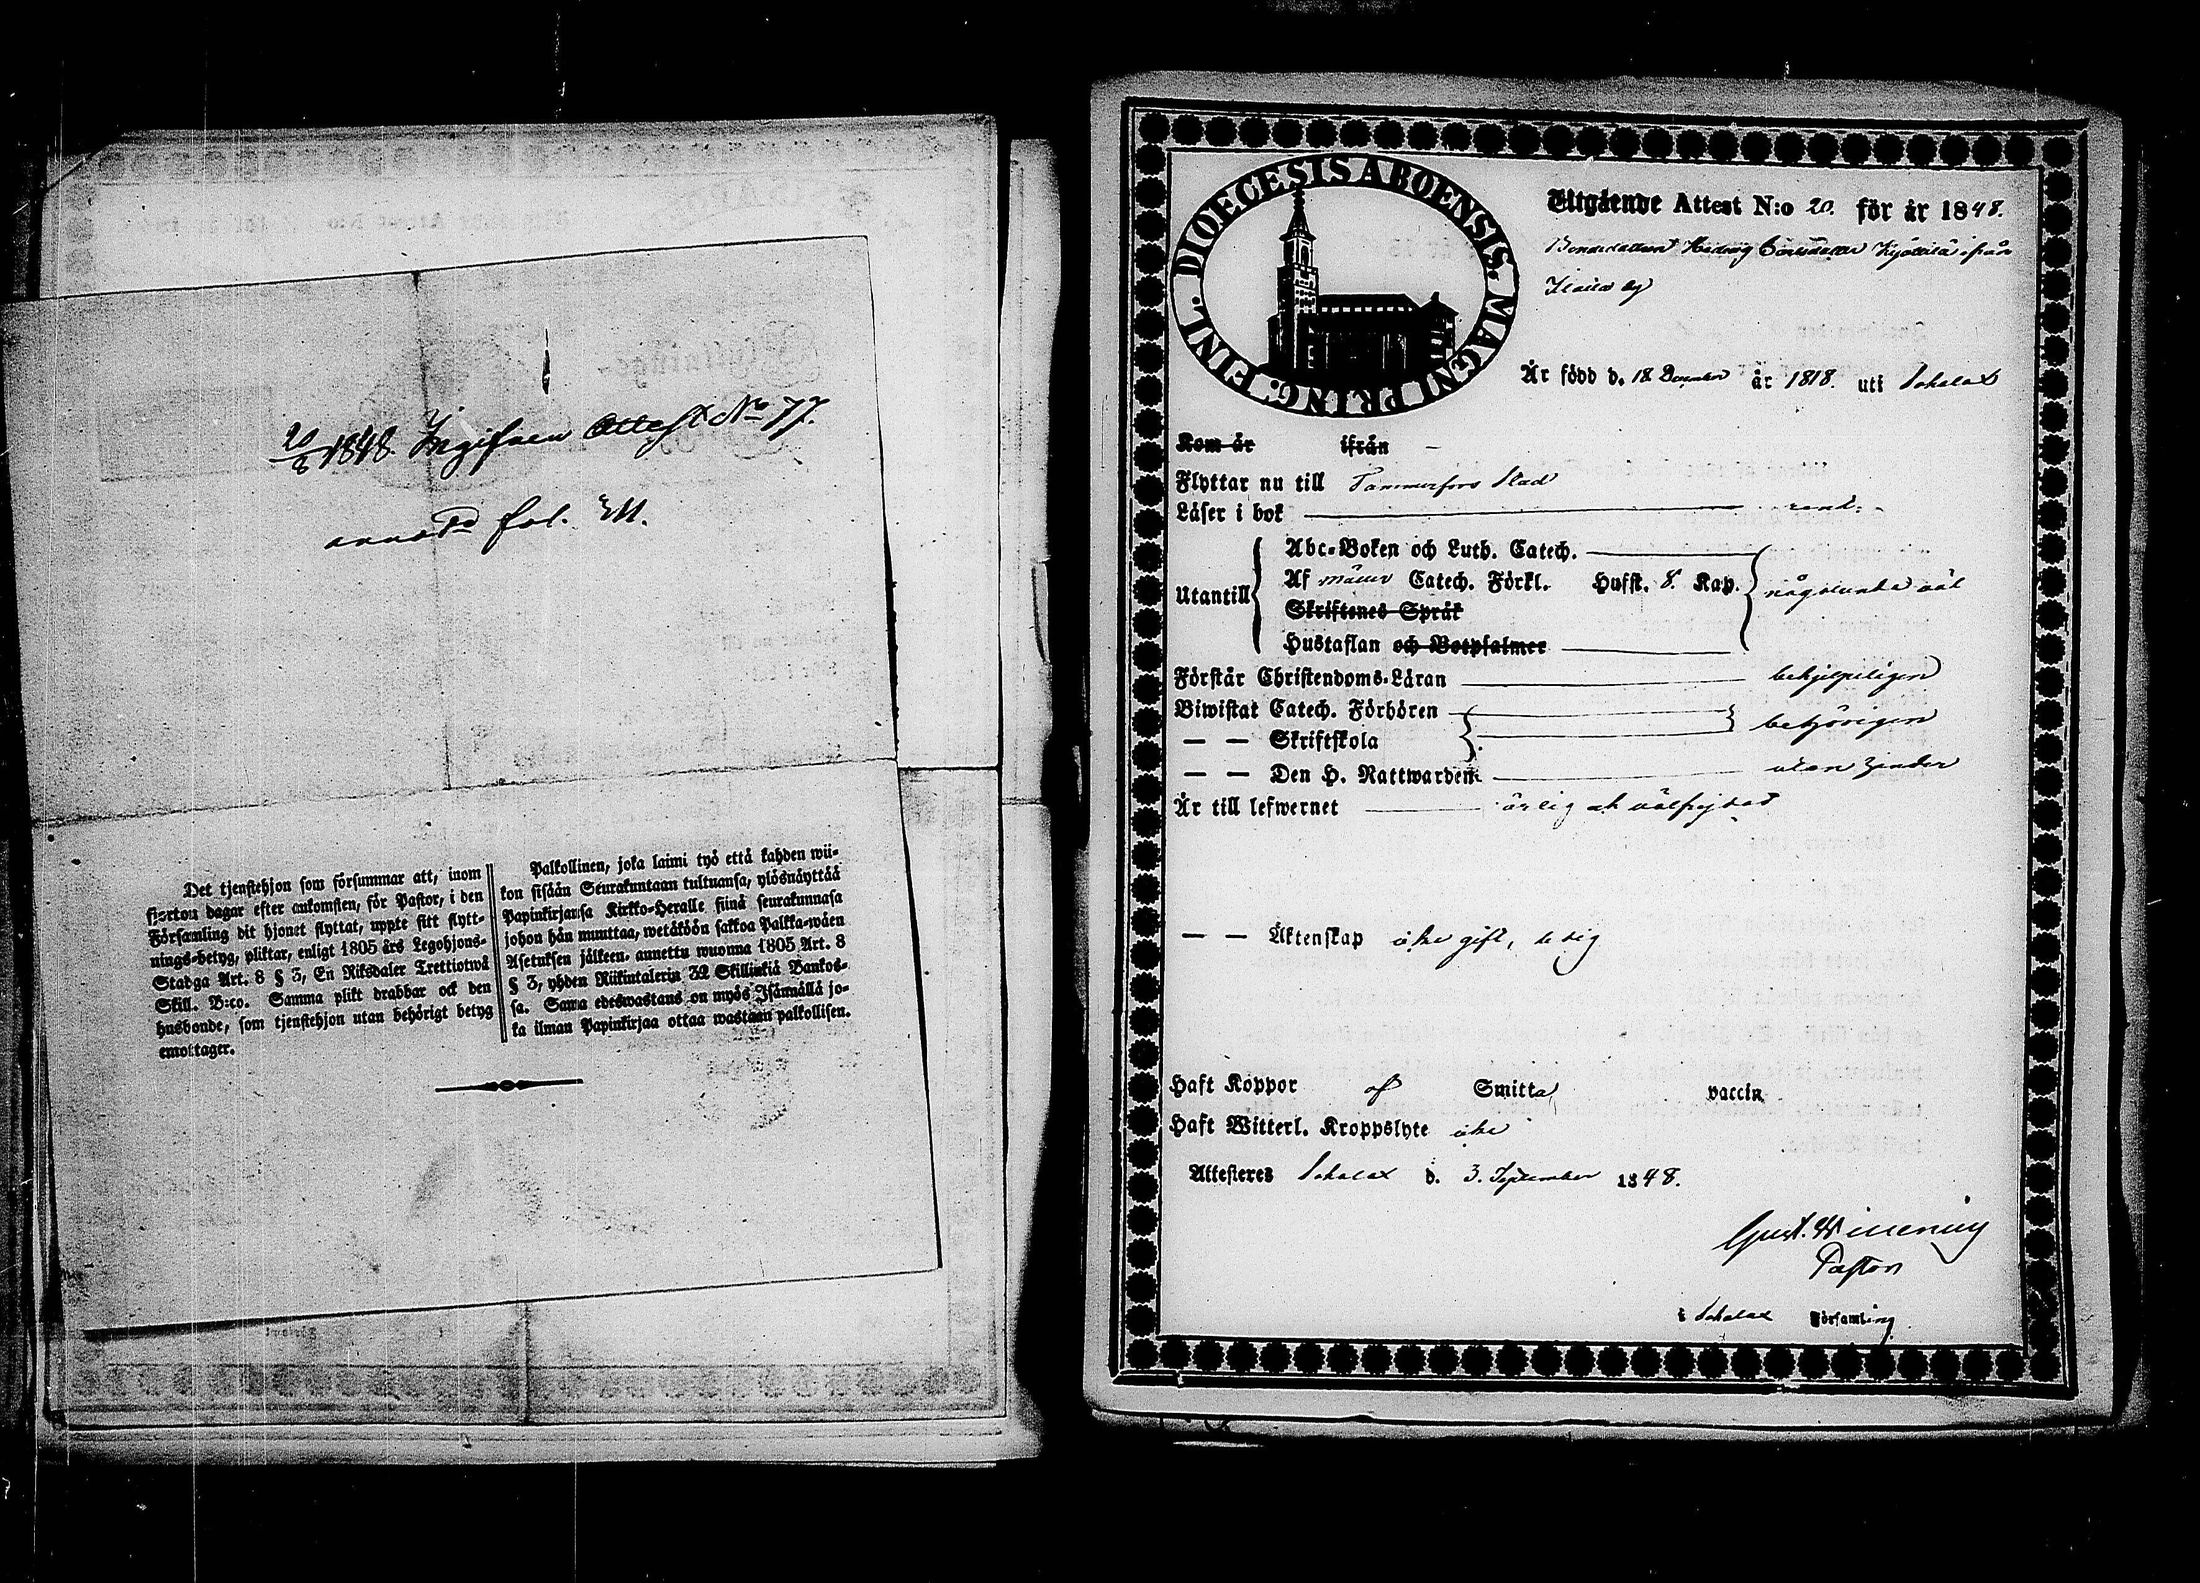 20/8 1848. Ingifven Attest No 77.
fol.
Det tjenstehjon som försummar att, inom
fjorton dagar efter ankomsten, för Pastor, i den
Församling dit hjonet flyttat, uppte sitt flytt-
nings-betyg, pliktar, enligt 1805 års Legohjons-
Stadga Art. 8 § 3, En Riksdaler Trettiotwå
Skill. B:co. Samma plikt drabbar ock den
husbonde, som tjenstehjon utan behörigt betyg
emottager.
Palkollinen, joka laimi lyö että kahden wii-
kon sisään Seurakuntaan tultuansa, ylösnäyttää
Papinkirjansa Kirkko-Heralle siinä seurakunnasa
johon hän muuttaa, wetäköön sakkoa Palkka-wäen
Asetuksen jälkeen, annettu wuonna 1805 Art. 8
§ 3, yhden Riikintalerin 32 Skillinkiä Bankos-
sa. Sama edeswastaus on myös Isännällä jo-
ka ilman Papinkirjaa ottaa wastaan palkollisen.
DIOECESIS ABOENSIS. MAGNI PRINC. FINL.
Utgående Attest N:o 20. för år 1848.
Bondedottren Hedvig ifrån
by
Är född d. 18 December år 1818. uti Sahalax
Kom år ifrån
Flyttar nu till Tammerfors Stad
Läser i bok rent.
Utantill
Abc-Boken och Luth. Catech.
Af Catech. Förkl. Hufst. 8. Kap. någorlunda väl
Skriftenes Språk
Hustaflan och Botpsalmer
Förstår Christendoms-Läran behjelpeligen
Biwistat Catech. Förhören behörigen
— — Skriftskola
— — Den H. Nattwarden utan hinder
Är till lefwernet ärlig och välfrejdad
— — Äktenskap icke gift, ledig
Haft Koppor af Smitta vaccin
Haft Witterl. Kroppslyte icke
Attesteres Sahalax d. 3. September 1848.
Gust.
Pastor
i Sahalax Församling.